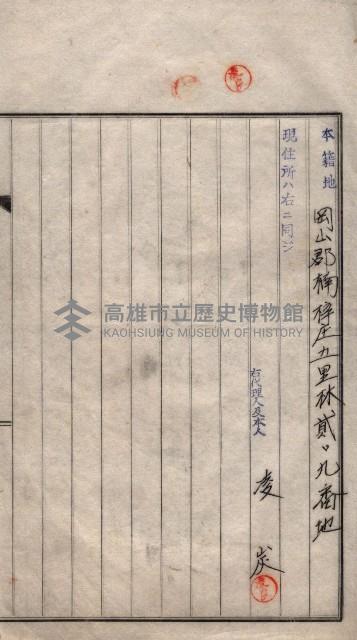 本籍地 岡山郡楠梓庄五里林貳〇九番地
現住所ハ右ニ同ジ
右代理人及本人
凌 炭
高雄市立歷史博物館
KAOHSIUNG MUSEUM OF HISTORY